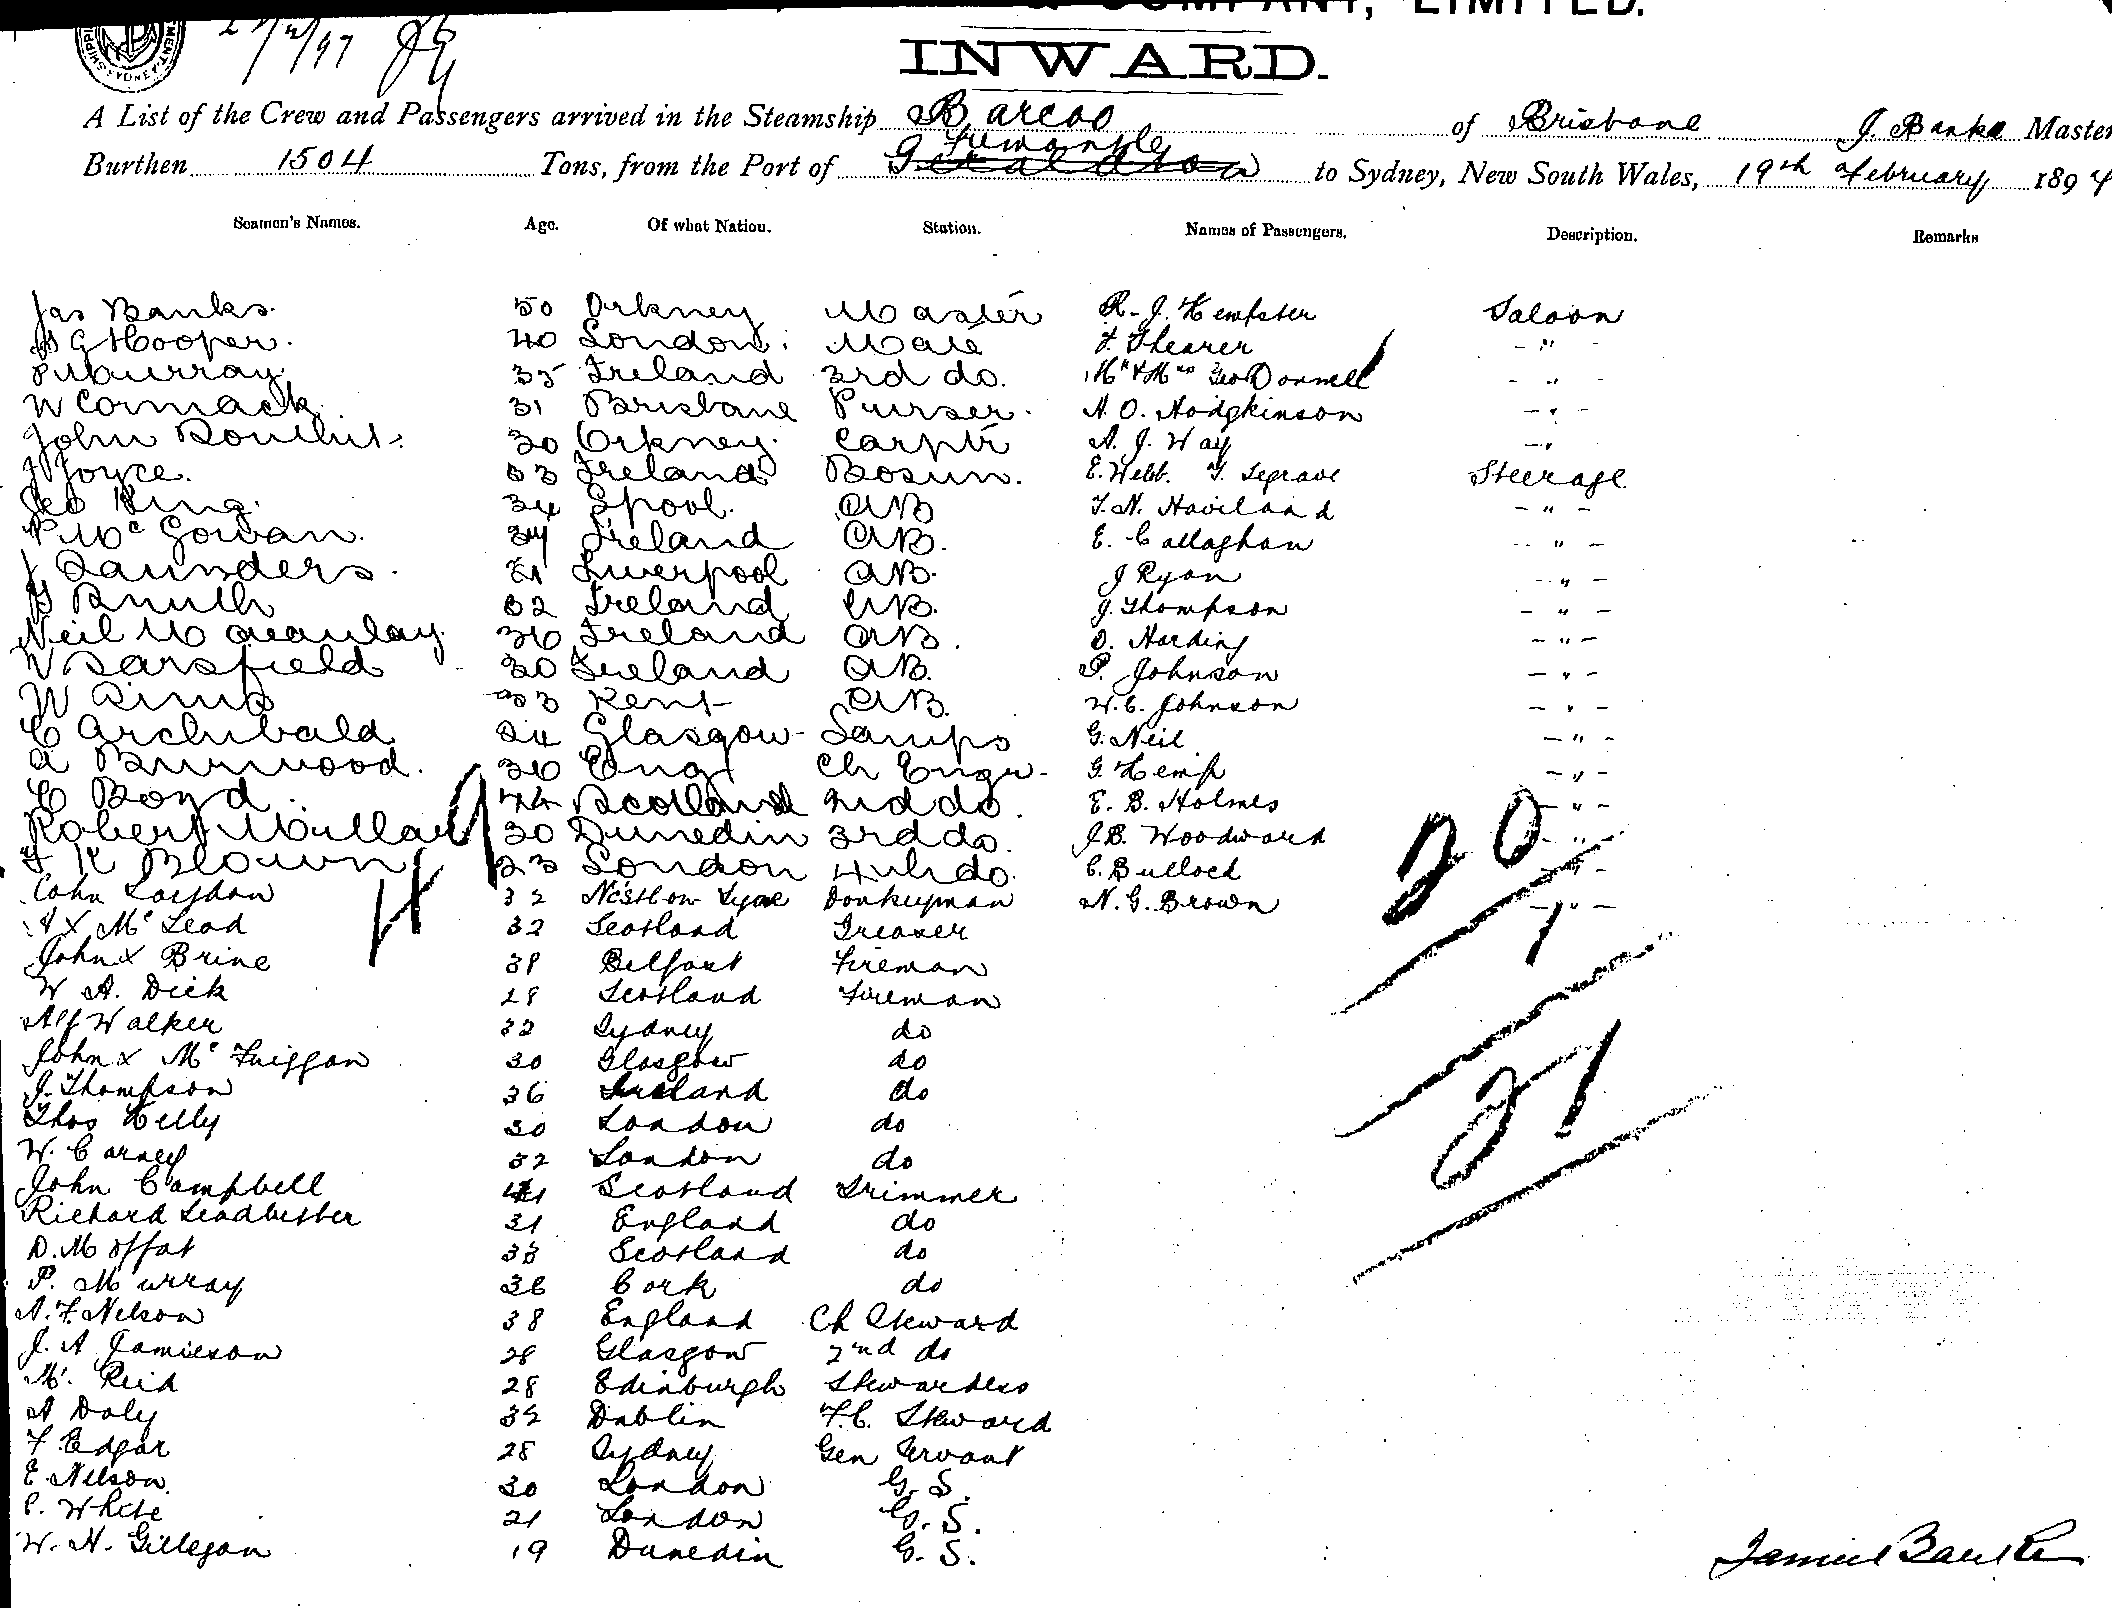 COMPANY, LIMITED.
INWARD.
A List of the Crew and Passengers arrived in the Steamship Barcoo of Brisbane J. Banks Master
Burthen 1504 Tons, from the Port of Fremantle to Sydney, New South Wales, 19th February 1897
Seamen's Names. Age. Of what Nation. Station. Names of Passengers. Description. Remarks
Jas Banks. 50 Orkney Master R. J. Hempster Saloon
G Hooper. 40 London. Mate F. Shearer - " -
P Murray 35 Ireland 3rd do. Mr & Mrs Geo Donnell - " -
W Cormack 31 Brisbane Purser. H. O. Hodgkinson - " -
John 30 Orkney. Carptr A. J. Way - "
J Joyce. 53 Ireland Bosun. E. Webb. T. Segrave Steerage
Geo King. 34 Lpool. AB T. H. Haviland - " -
P. McGowan. 34 Ireland AB. E. Callaghan - " -
J Saunders. 21 Liverpool AB. J Ryan - " -
Smith 32 Ireland AB. J. Thompson - " -
Neil Macaulay. 36 Ireland AB. D. Harding - " -
W Sarsfield 30 Ireland AB. P. Johnson - " -
W Sims 33 Kent AB. W. C. Johnson - " -
C Archibald 24 Glasgow Lamps G. Neil - " -
A Burwood. 36 Eng Ch Engr. G. Kemp - " -
C Boyd 44 Scotland 2nd do. E. B. Holmes - " -
Robert Millar 30 Dunedin 3rd do. J. B. Woodward - " -
F R Brown 23 London 4th do. C. Bullock - " -
32 Donkeyman N. G. Brown - " -
A X McLeod 32 Scotland Greaser
John X Brine 38 Belfast Fireman
W A. Dick 28 Scotland Fireman
Alf Walker 32 Sydney do
John X McGuiggan 30 Glasgow do
J. Thompson 36 Ireland do
Thos Kelly 30 London do
W. Carney 32 London do
John Campbell 41 Scotland Trimmer
Richard Leadbetter 31 England do
D. Moffat 33 Scotland do
P. Murray 36 Cork do
A. F. Nelson 38 England Ch Steward
J. A Jamieson 28 Glasgow 2nd do
M. Reid 28 Edinburgh Stewardess
A Daly 32 Dublin F.C. Steward
F. Edgar 28 Sydney Gen Servant
E. Nelson 30 London G. S.
C. White 21 London G. S.
W. H. Gillegan 19 Dunedin G. S.
20
1
21
James Banks